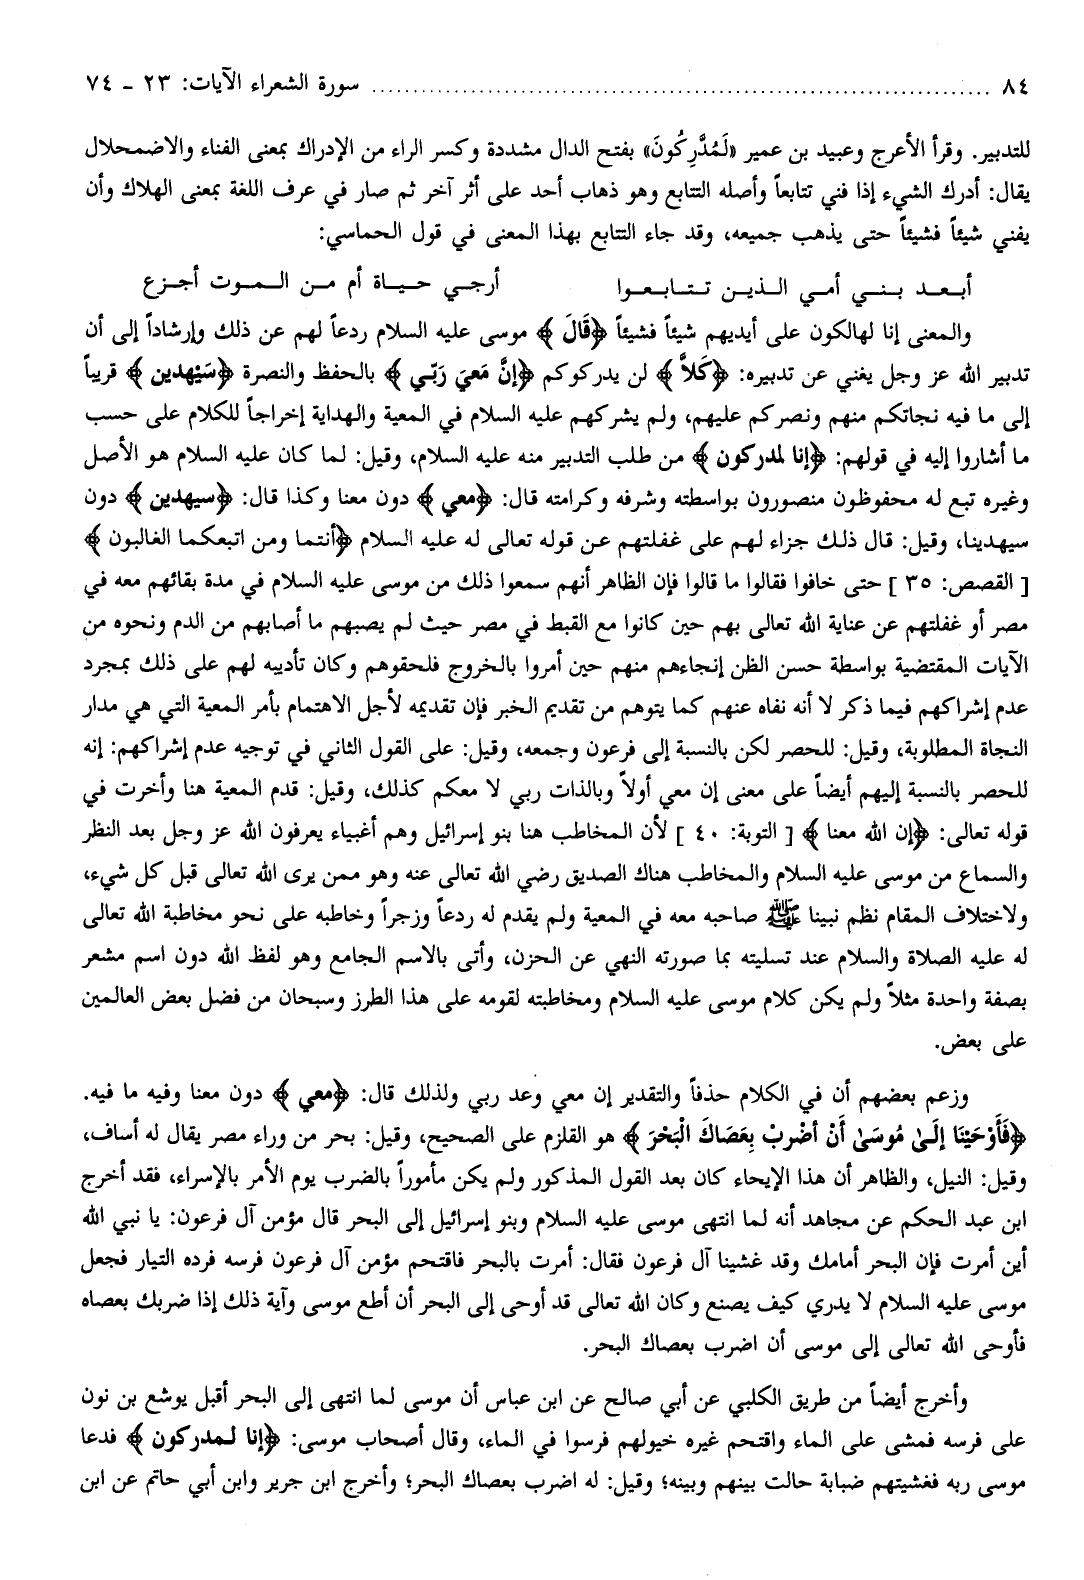 ٨٤ ........................................................................ سورة الشعراء الآيات: ٢٣ - ٧٤
للتدبير. وقرأ الأعرج وعبيد بن عمير «لَمُدَّرِكُونَ» بفتح الدال مشددة وكسر الراء من الإدراك بمعنى الفناء والاضمحلال
يقال: أدرك الشيء إذا فني تتابعاً وأصله التتابع وهو ذهاب أحد على أثر آخر ثم صار في عرف اللغة بمعنى الهلاك وأن
يفني شيئاً فشيئاً حتى يذهب جميعه، وقد جاء التتابع بهذا المعنى في قول الحماسي:
أبـعـد بـنـي أمـي الـذيـن تـتـابـعـوا    أرجـي حـيـاة أم مـن الـمـوت أجـزع
والمعنى إنا لهالكون على أيديهم شيئاً فشيئاً ﴿قَالَ﴾ موسى عليه السلام ردعاً لهم عن ذلك وإرشاداً إلى أن
تدبير الله عز وجل يغني عن تدبيره: ﴿كَلاَّ﴾ لن يدركوكم ﴿إنَّ مَعيَ رَبّي﴾ بالحفظ والنصرة ﴿سَيْهدين﴾ قريباً
إلى ما فيه نجاتكم منهم ونصركم عليهم، ولم يشركهم عليه السلام في المعية والهداية إخراجاً للكلام على حسب
ما أشاروا إليه في قولهم: ﴿إنا لمدركون﴾ من طلب التدبير منه عليه السلام، وقيل: لما كان عليه السلام هو الأصل
وغيره تبع له محفوظون منصورون بواسطته وشرفه وكرامته قال: ﴿معي﴾ دون معنا وكذا قال: ﴿سيهدين﴾ دون
سيهدينا، وقيل: قال ذلك جزاء لهم على غفلتهم عن قوله تعالى له عليه السلام ﴿أنتما ومن اتبعكما الغالبون﴾
[ القصص: ٣٥ ] حتى خافوا فقالوا ما قالوا فإن الظاهر أنهم سمعوا ذلك من موسى عليه السلام في مدة بقائهم معه في
مصر أو غفلتهم عن عناية الله تعالى بهم حين كانوا مع القبط في مصر حيث لم يصبهم ما أصابهم من الدم ونحوه من
الآيات المقتضية بواسطة حسن الظن إنجاءهم منهم حين أمروا بالخروج فلحقوهم وكان تأديبه لهم على ذلك بمجرد
عدم إشراكهم فيما ذكر لا أنه نفاه عنهم كما يتوهم من تقديم الخبر فإن تقديمه لأجل الاهتمام بأمر المعية التي هي مدار
النجاة المطلوبة، وقيل: للحصر لكن بالنسبة إلى فرعون وجمعه، وقيل: على القول الثاني في توجيه عدم إشراكهم: إنه
للحصر بالنسبة إليهم أيضاً على معنى إن معي أولاً وبالذات ربي لا معكم كذلك، وقيل: قدم المعية هنا وأخرت في
قوله تعالى: ﴿إن الله معنا﴾ [ التوبة: ٤٠ ] لأن المخاطب هنا بنو إسرائيل وهم أغبياء يعرفون الله عز وجل بعد النظر
والسماع من موسى عليه السلام والمخاطب هناك الصديق رضي الله تعالى عنه وهو ممن يرى الله تعالى قبل كل شيء،
ولاختلاف المقام نظم نبينا ﷺ صاحبه معه في المعية ولم يقدم له ردعاً وزجراً وخاطبه على نحو مخاطبة الله تعالى
له عليه الصلاة والسلام عند تسليته بما صورته النهي عن الحزن، وأتى بالاسم الجامع وهو لفظ الله دون اسم مشعر
بصفة واحدة مثلاً ولم يكن كلام موسى عليه السلام ومخاطبته لقومه على هذا الطرز وسبحان من فضل بعض العالمين
على بعض.
وزعم بعضهم أن في الكلام حذفاً والتقدير إن معي وعد ربي ولذلك قال: ﴿معي﴾ دون معنا وفيه ما فيه.
﴿فَأَوْحَيْنَا إلَىٰ مُوسَىٰ أَنْ أضْربْ بِعَصَاكَ الْبَحْرَ﴾ هو القلزم على الصحيح، وقيل: بحر من وراء مصر يقال له أساف،
وقيل: النيل، والظاهر أن هذا الإيحاء كان بعد القول المذكور ولم يكن مأموراً بالضرب يوم الأمر بالإسراء، فقد أخرج
ابن عبد الحكم عن مجاهد أنه لما انتهى موسى عليه السلام وبنو إسرائيل إلى البحر قال مؤمن آل فرعون: يا نبي الله
أين أمرت فإن البحر أمامك وقد غشينا آل فرعون فقال: أمرت بالبحر فاقتحم مؤمن آل فرعون فرسه فرده التيار فجعل
موسى عليه السلام لا يدري كيف يصنع وكان الله تعالى قد أوحى إلى البحر أن أطع موسى وآية ذلك إذا ضربك بعصاه
فأوحى الله تعالى إلى موسى أن اضرب بعصاك البحر.
وأخرج أيضاً من طريق الكلبي عن أبي صالح عن ابن عباس أن موسى لما انتهى إلى البحر أقبل يوشع بن نون
على فرسه فمشى على الماء واقتحم غيره خيولهم فرسوا في الماء، وقال أصحاب موسى: ﴿إنا لـمدركون﴾ فدعا
موسى ربه فغشيتهم ضبابة حالت بينهم وبينه؛ وقيل: له اضرب بعصاك البحر؛ وأخرج ابن جرير وابن أبي حاتم عن ابن